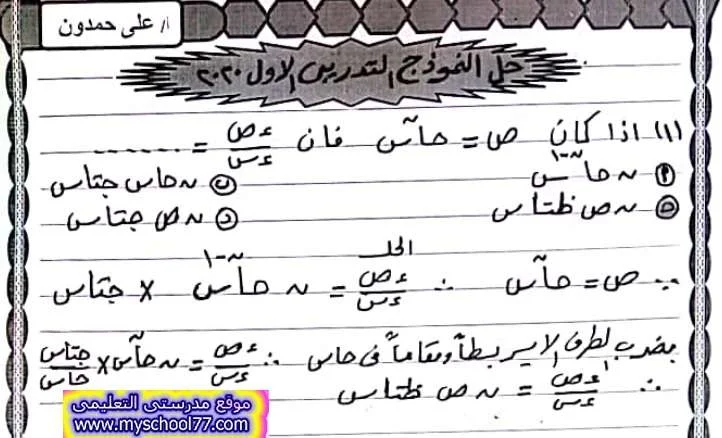 أ/ على حمدون
حل النموذج التدريبى الاول ٢٠٢٠
(١) اذا كان ص = حاⁿس فان ءص/ءس = ......
Ⓟ ن حاⁿ⁻¹س ⓑ ن حاس جتاس
ⓗ ن ص ظتاس ⓓ ن ص جتاس
الحل
∵ ص = حاⁿس ∴ ءص/ءس = ن حاⁿ⁻¹س × جتاس
بضرب لطرف الايسر بسطاً ومقاماً فى حاس ∴ ءص/ءس = ن حاⁿس × جتاس/حاس
∴ ءص/ءس = ن ص ظتاس
موقع مدرستى التعليمى
www.myschool77.com